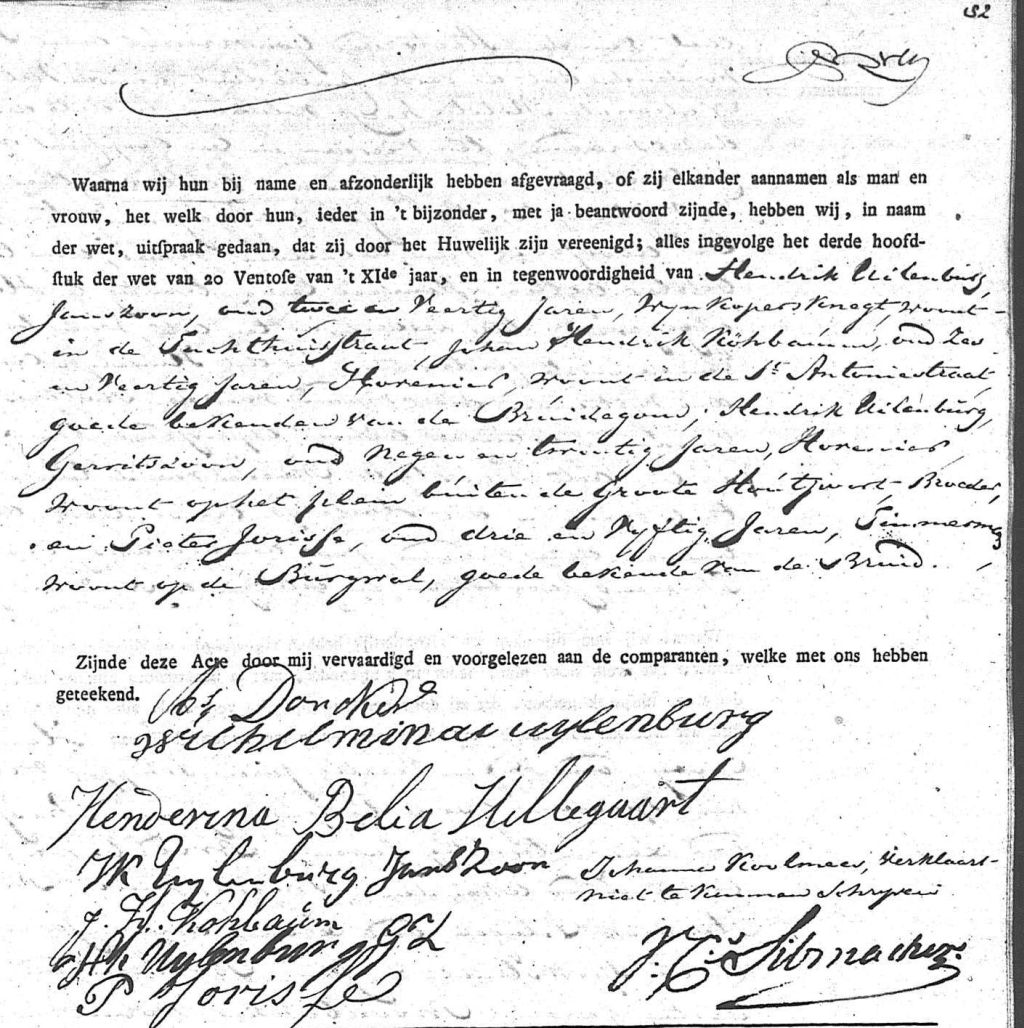 152
Waarna wij hun bij name en afzonderlijk hebben afgevraagd, of zij elkander aannamen als man en
vrouw, het welk door hun, ieder in 't bijzonder, met ja beantwoord zijnde, hebben wij, in naam
der wet, uitspraak gedaan, dat zij door het Huwelijk zijn vereenigd; alles ingevolge het derde hoofd-
stuk der wet van 20 Ventose van 't XIde jaar, en in tegenwoordigheid van Hendrik Uilenburg,
Janszoon, oud twee en Veertig Jaren, Wynkopersknegt, woont
in de Tuchthuisstraat, Johan Hendrik Kohbaum, oud Zes
en Veertig Jaren, Hovenier, woont in de St. Antoniestraat,
goede bekenden van de Bruidegom, Hendrik Uilenburg,
Gerritszoon, oud Negen en twintig Jaren, Hovenier,
woont op het plein buiten de Groote Houtpoort, Broeder,
en Pieter Jorisse, oud drie en Vyftig Jaren, Timmerman,
woont op de Burgwal, goede bekende van de Bruid.
Zijnde deze Acte door mij vervaardigd en voorgelezen aan de comparanten, welke met ons hebben
geteekend.
Doncker
Wilhelmina uylenburg
Henderina Belia Hillegaart
HK Uylenburg Jans Zoon
Johanna Koolmees, verklaart
niet te kunnen schryven
J. H. Kohbaum
HK Uylenburg GZ
P Jorisse
J. Cs. Sibmacher